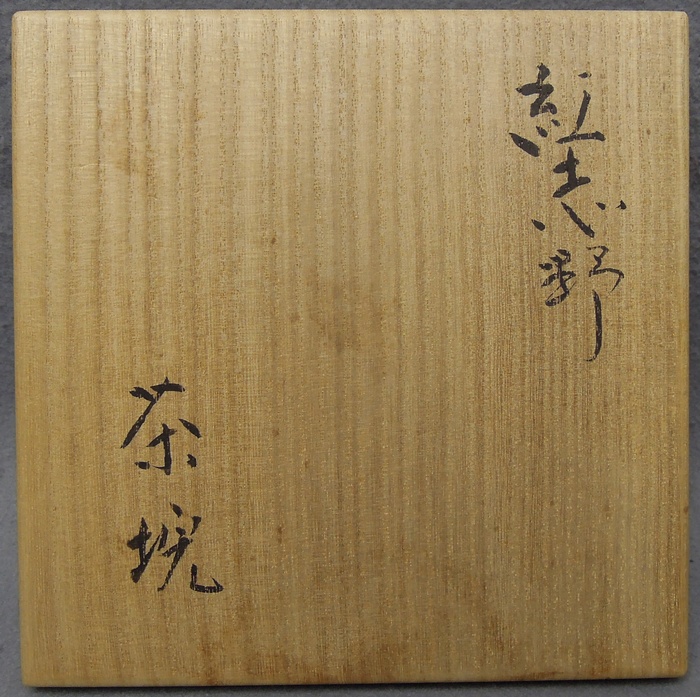 紅志野
茶埦